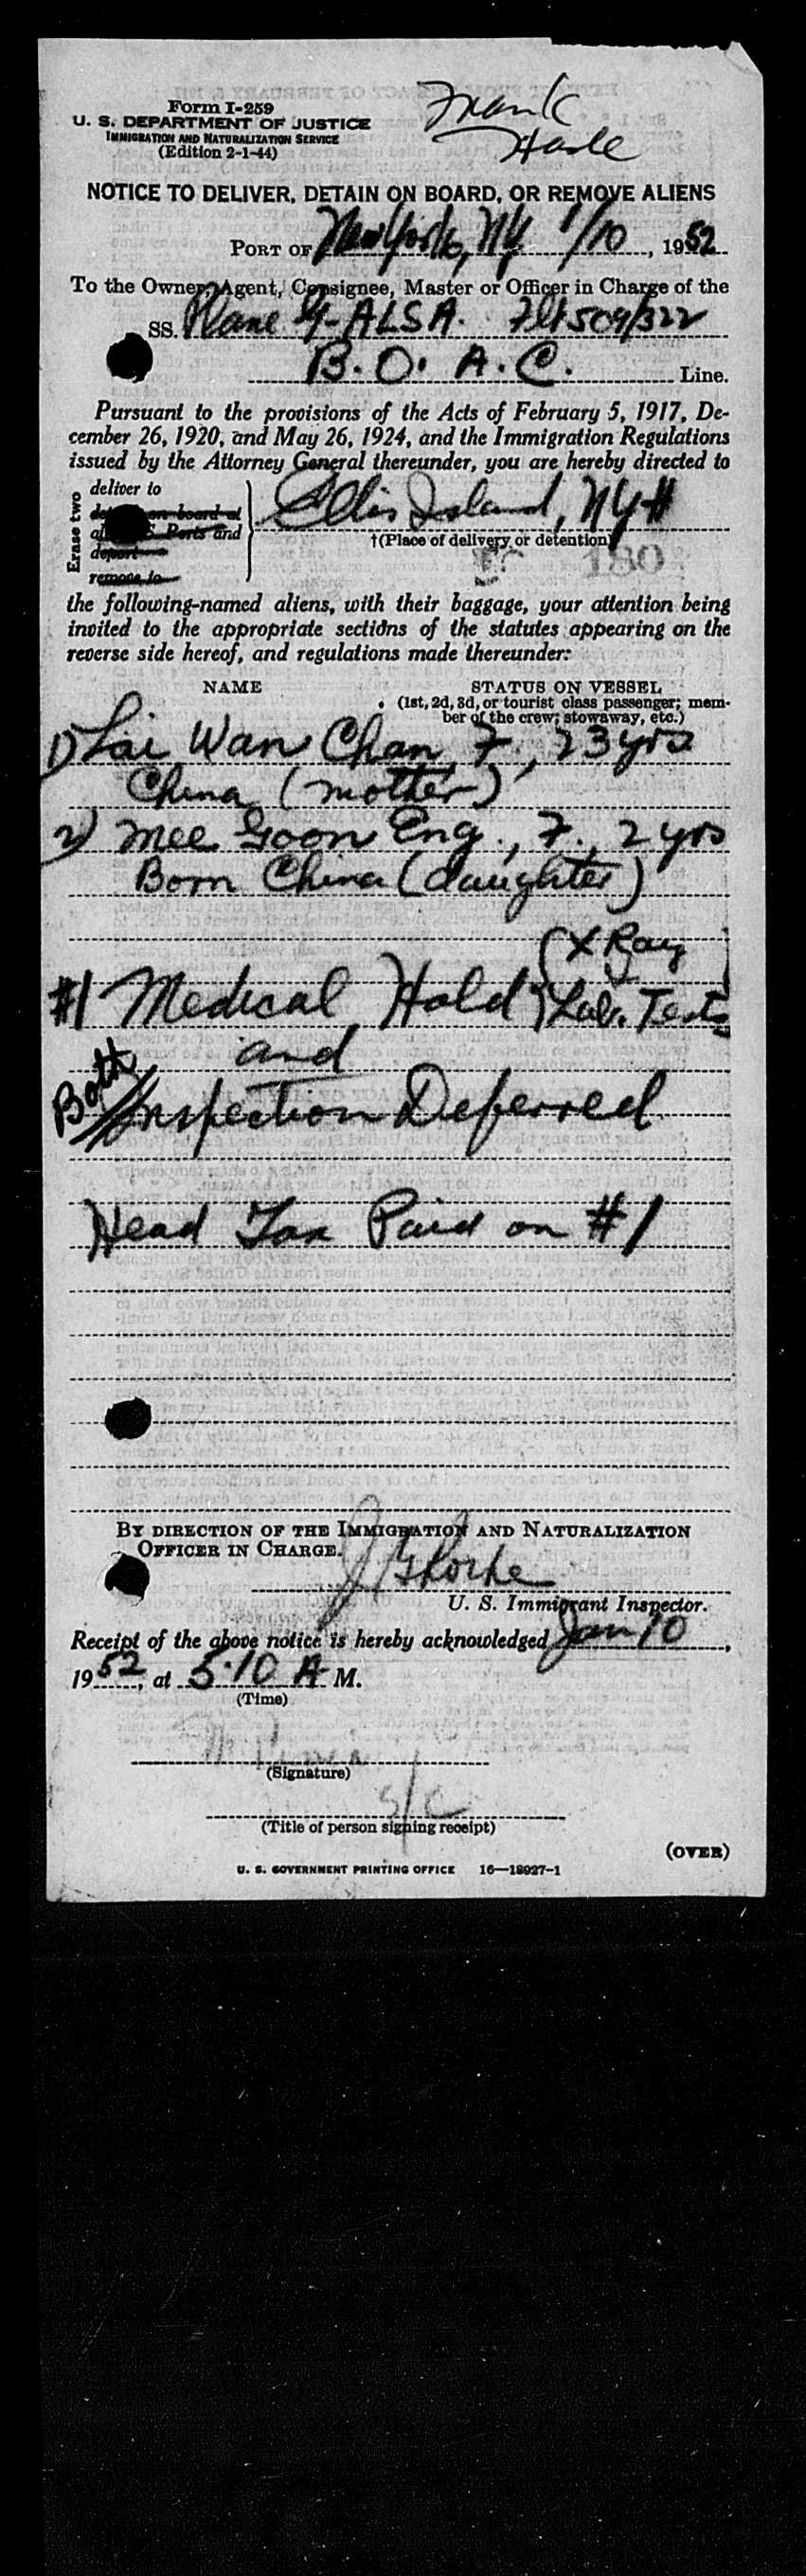 Form I-259
U. S. DEPARTMENT OF JUSTICE
IMMIGRATION AND NATURALIZATION SERVICE
(Edition 2-1-44)
Frank
NOTICE TO DELIVER, DETAIN ON BOARD, OR REMOVE ALIENS
PORT OF New York, NY 1/10, 1952
To the Owner, Agent, Consignee, Master or Officer in Charge of the
SS. Plane G-ALSA. Flt 509/322
B. O. A. C. Line.
Pursuant to the provisions of the Acts of February 5, 1917, De-
cember 26, 1920, and May 26, 1924, and the Immigration Regulations
issued by the Attorney General thereunder, you are hereby directed to
Erase two
deliver to
on board at
Ports and
deport
remove to
Ellis Island, NY
†(Place of delivery or detention)
180
the following-named aliens, with their baggage, your attention being
invited to the appropriate sections of the statutes appearing on the
reverse side hereof, and regulations made thereunder:
NAME
STATUS ON VESSEL
(1st, 2d, 3d, or tourist class passenger; mem-
ber of the crew; stowaway, etc.)
1) Lai Wan Chan, F., 23 yrs
China (mother)
2) Mee Goon Eng., F., 2 yrs
Born China (daughter)
(X Ray
#1 Medical Hold Lab. Tests
and
Both Inspection Deferred
Head Tax Paid on #1
BY DIRECTION OF THE IMMIGRATION AND NATURALIZATION
OFFICER IN CHARGE.
U. S. Immigrant Inspector.
Receipt of the above notice is hereby acknowledged Jan 10,
1952, at 5:10 A M.
(Time)
(Signature)
S/C
(Title of person signing receipt)
(OVER)
U. S. GOVERNMENT PRINTING OFFICE 16—18927-1